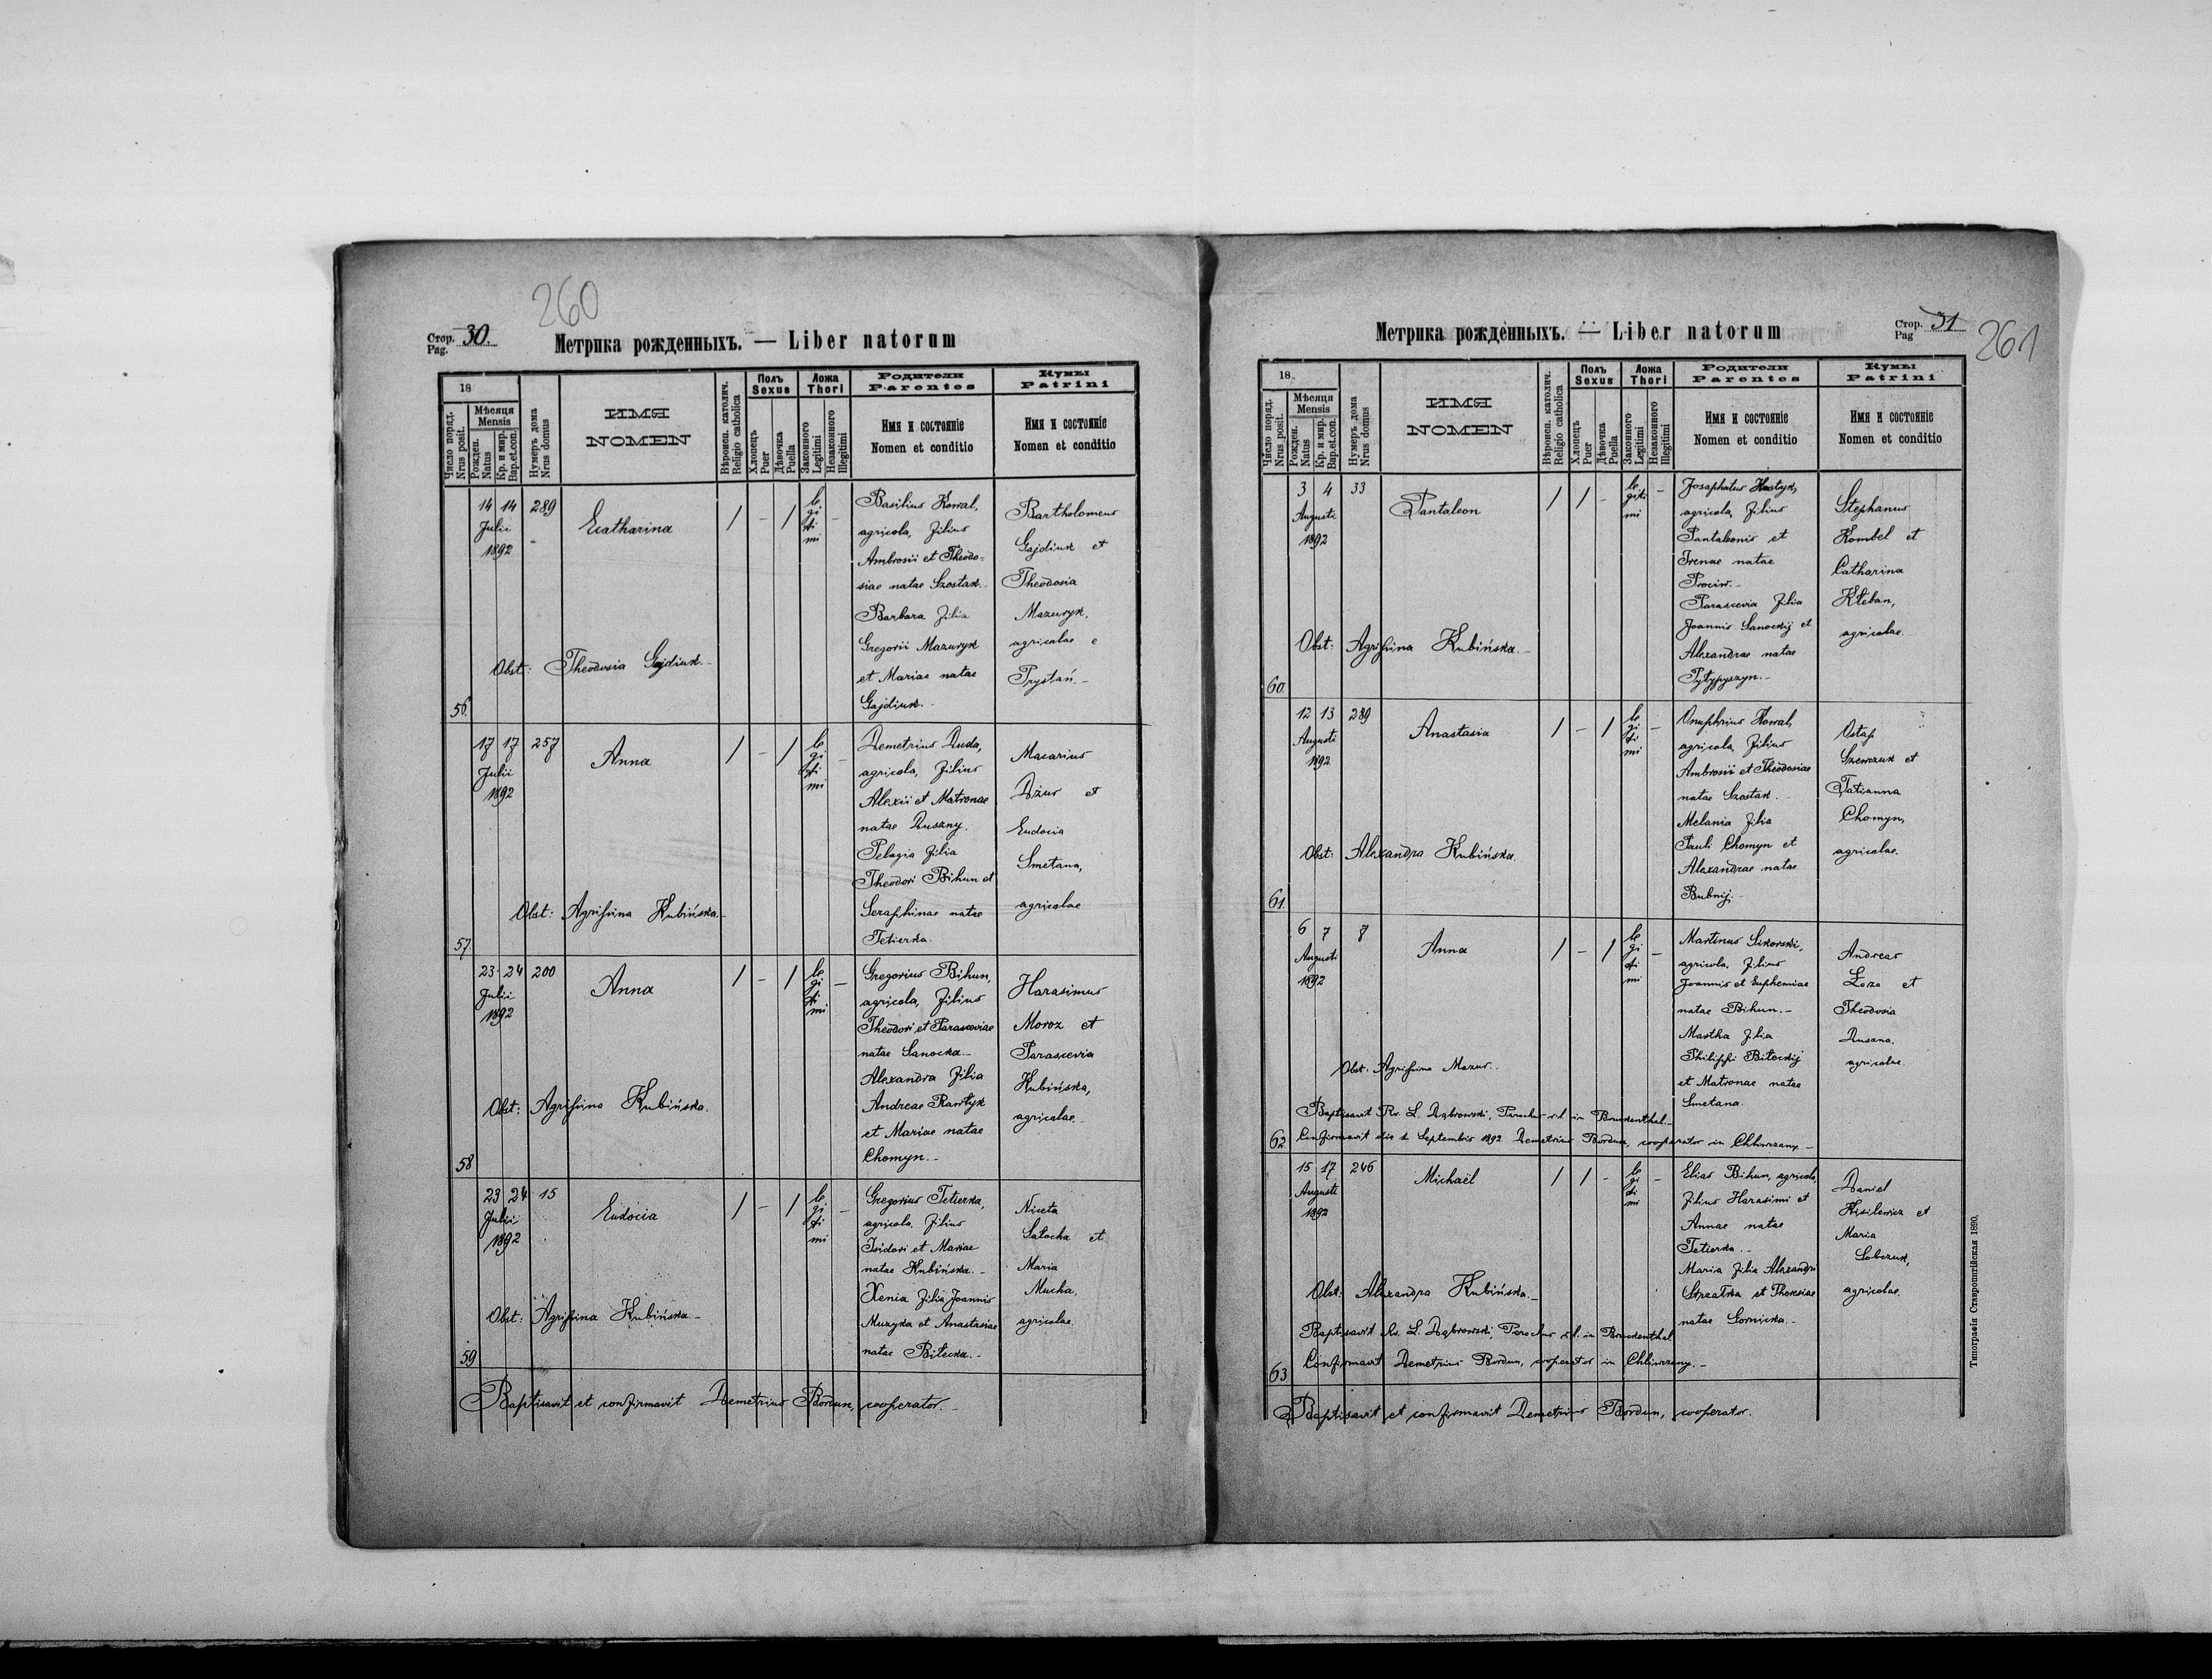 260
Стор. 30.
Pag.
Метрика рожденныхъ. — Liber natorum
18
Число поряд.
Nrus posit.
Мѣсяця
Mensis
Рожден.
Natus
Кр. и мир.
Bap.et.con.
Нумеръ дома
Nrus domus
ИМЯ
NOMEN
Вѣроисп. католич.
Religio catholica
Полъ
Sexus
Хлопецъ
Puer
Дѣвочка
Puella
Ложа
Thori
Законного
Legitimi
Незаконного
Illegitimi
Родители
Parentes
Имя и состояніе
Nomen et conditio
Кумы
Patrini
Имя и состояніе
Nomen et conditio
56.
14 14 289
Julii
1892
Ecatharina
/ - / le
gi
ti
mi -
Basilius Kowal,
agricola, filius
Ambrosii et Theodo=
siae natae Szostak.-
Barbara filia
Gregorii Mazuryk
et Mariae natae
Gajdiuk.-
Bartholomeus
Gajdiuk et
Theodosia
Mazuryk,
agricolae e
Prystań.-
Obst: Theodosia Gajdiuk.-
57.
17 17 257
Julii
1892
Anna
/ - / le
gi
ti
mi -
Demetrius Duda,
agricola, filius
Alexii et Matronae
natae Ruszny.
Pelagia filia
Theodori Bihun et
Seraphinae natae
Tetierka.
Macarius
Dżur et
Eudocia
Smetana,
agricolae
Obst: Agrifina Kubińska.-
58
23 24 200
Julii
1892
Anna
/ - / le
gi
ti
mi -
Gregorius Bihun,
agricola, filius
Theodori et Parasceviae
natae Sanocka.-
Alexandra filia
Andreae Rawtyk
et Mariae natae
Chomyn.-
Harasimus
Moroz et
Parascevia
Kubińska,
agricolae.-
Obst: Agrifina Kubińska.
59
23 24 15
Julii
1892
Eudocia
/ - / le
gi
ti
mi -
Gregorius Tetierka,
agricola, filius
Isidori et Mariae
natae Kubińska.-
Xenia filia Joannis
Muzyka et Anastasiae
natae Biłecka.-
Niceta
Satocha et
Maria
Mucha,
agricolae.
Obst: Agrifina Kubińska.-
Baptisavit et confirmavit Demetrius Bordun, cooperator.-
Метрика рожденныхъ. — Liber natorum
Стор. 31
Pag
261
18.
Число поряд.
Nrus posit.
Мѣсяця
Mensis
Рожден.
Natus
Кр. и мир.
Bap.et.con.
Нумеръ дома
Nrus domus
ИМЯ
NOMEN
Вѣроисп. католич.
Religio catholica
Полъ
Sexus
Хлопецъ
Puer
Дѣвочка
Puella
Ложа
Thori
Законного
Legitimi
Незаконного
Illegitimi
Родители
Parentes
Имя и состояніе
Nomen et conditio
Кумы
Patrini
Имя и состояніе
Nomen et conditio
60.
3 4 33
Augusti
1892
Pantaleon
/ / - le
giti
mi -
Josaphatus Kostyk,
agricola, filius
Pantaleonis et
Irenae natae
Prociw.-
Parascevia filia
Joannis Sanockij et
Alexandrae natae
Pytypyszyn.-
Stephanus
Kombel et
Catharina
Kłeban,
agricolae.
Obst: Agrifina Kubińska.-
61.
12 13 289
Augusti
1892
Anastasia
/ - / le
gi
ti
mi -
Onuphrius Kowal,
agricola, filius
Ambrosii et Theodosiae
natae Szostak.-
Melania filia
Pauli Chomyn et
Alexandrae natae
Bubnij.
Ostap
Szewczuk et
Tatianna
Chomyn,
agricolae.
Obst: Alexandra Kubińska.
62
6 7 7
Augusti
1892
Anna
/ - / le
gi
ti
mi -
Martinus Sikorski,
agricola, filius
Joannis et Euphemiae
natae Bihun.-
Martha filia
Philippi Biłeckij
et Matronae natae
Smetana.
Andreas
Łoza et
Theodosia
Dusana,
agricolae
Obst: Agrifina Mazur.-
Baptisavit Rv. L. Dąbrowski, Parochus r.l. in Bruckenthal.-
Confirmavit die 2 Septembris 1892 Demetrius Bordun, cooperator in Chliwczany.-
63
15 17 246
Augusti
1892
Michaël
/ / - le
gi
ti
mi -
Elias Bihun, agricola,
filius Harasimi et
Annae natae
Tetierka.-
Maria filia Alexandri
Strzałka et Theresiae
natae Sornicka.-
Daniel
Kisilewicz et
Maria
Sobczuk,
agricolae.
Obst: Alexandra Kubińska.-
Baptisavit Rv. L. Dąbrowski, Parochus r.l. in Bruckenthal
Confirmavit Demetrius Bordun, cooperator in Chliwczany.-
Baptisavit et confirmavit Demetrius Bordun, cooperator.
Типографія Ставропигійская 1890.